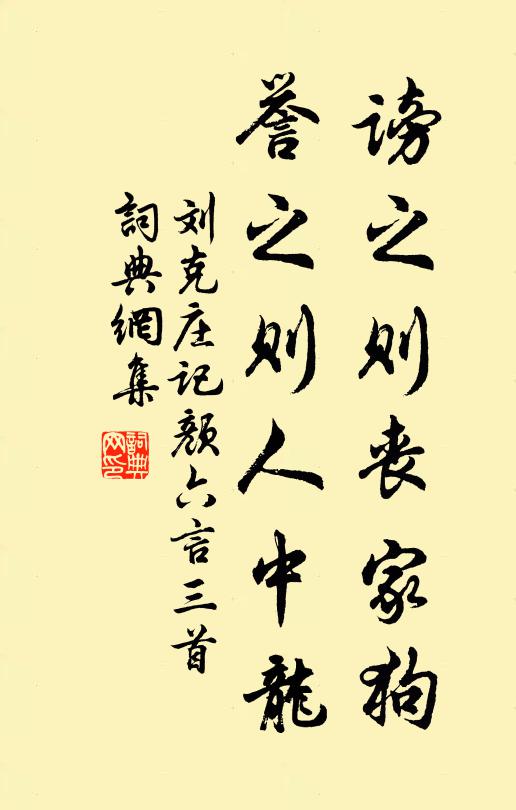 謗之则丧家狗
誉之则人中龍
刘克庄记颜六言三首
詞典網集
詞典网印